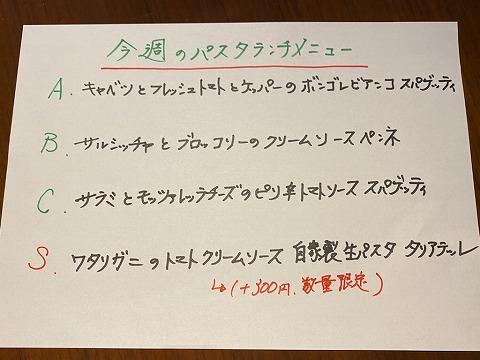 今週のパスタランチメニュー
A. キャベツとフレッシュトマトとケッパーのボンゴレビアンコ スパゲッティ
B. サルシッチャとブロッコリーのクリームソース ペンネ
C. サラミとモッツァレッラチーズのピリ辛トマトソース スパゲッティ
S. ワタリガニのトマトクリームソース 自家製生パスタ タリアテッレ
↳(+300円、数量限定)